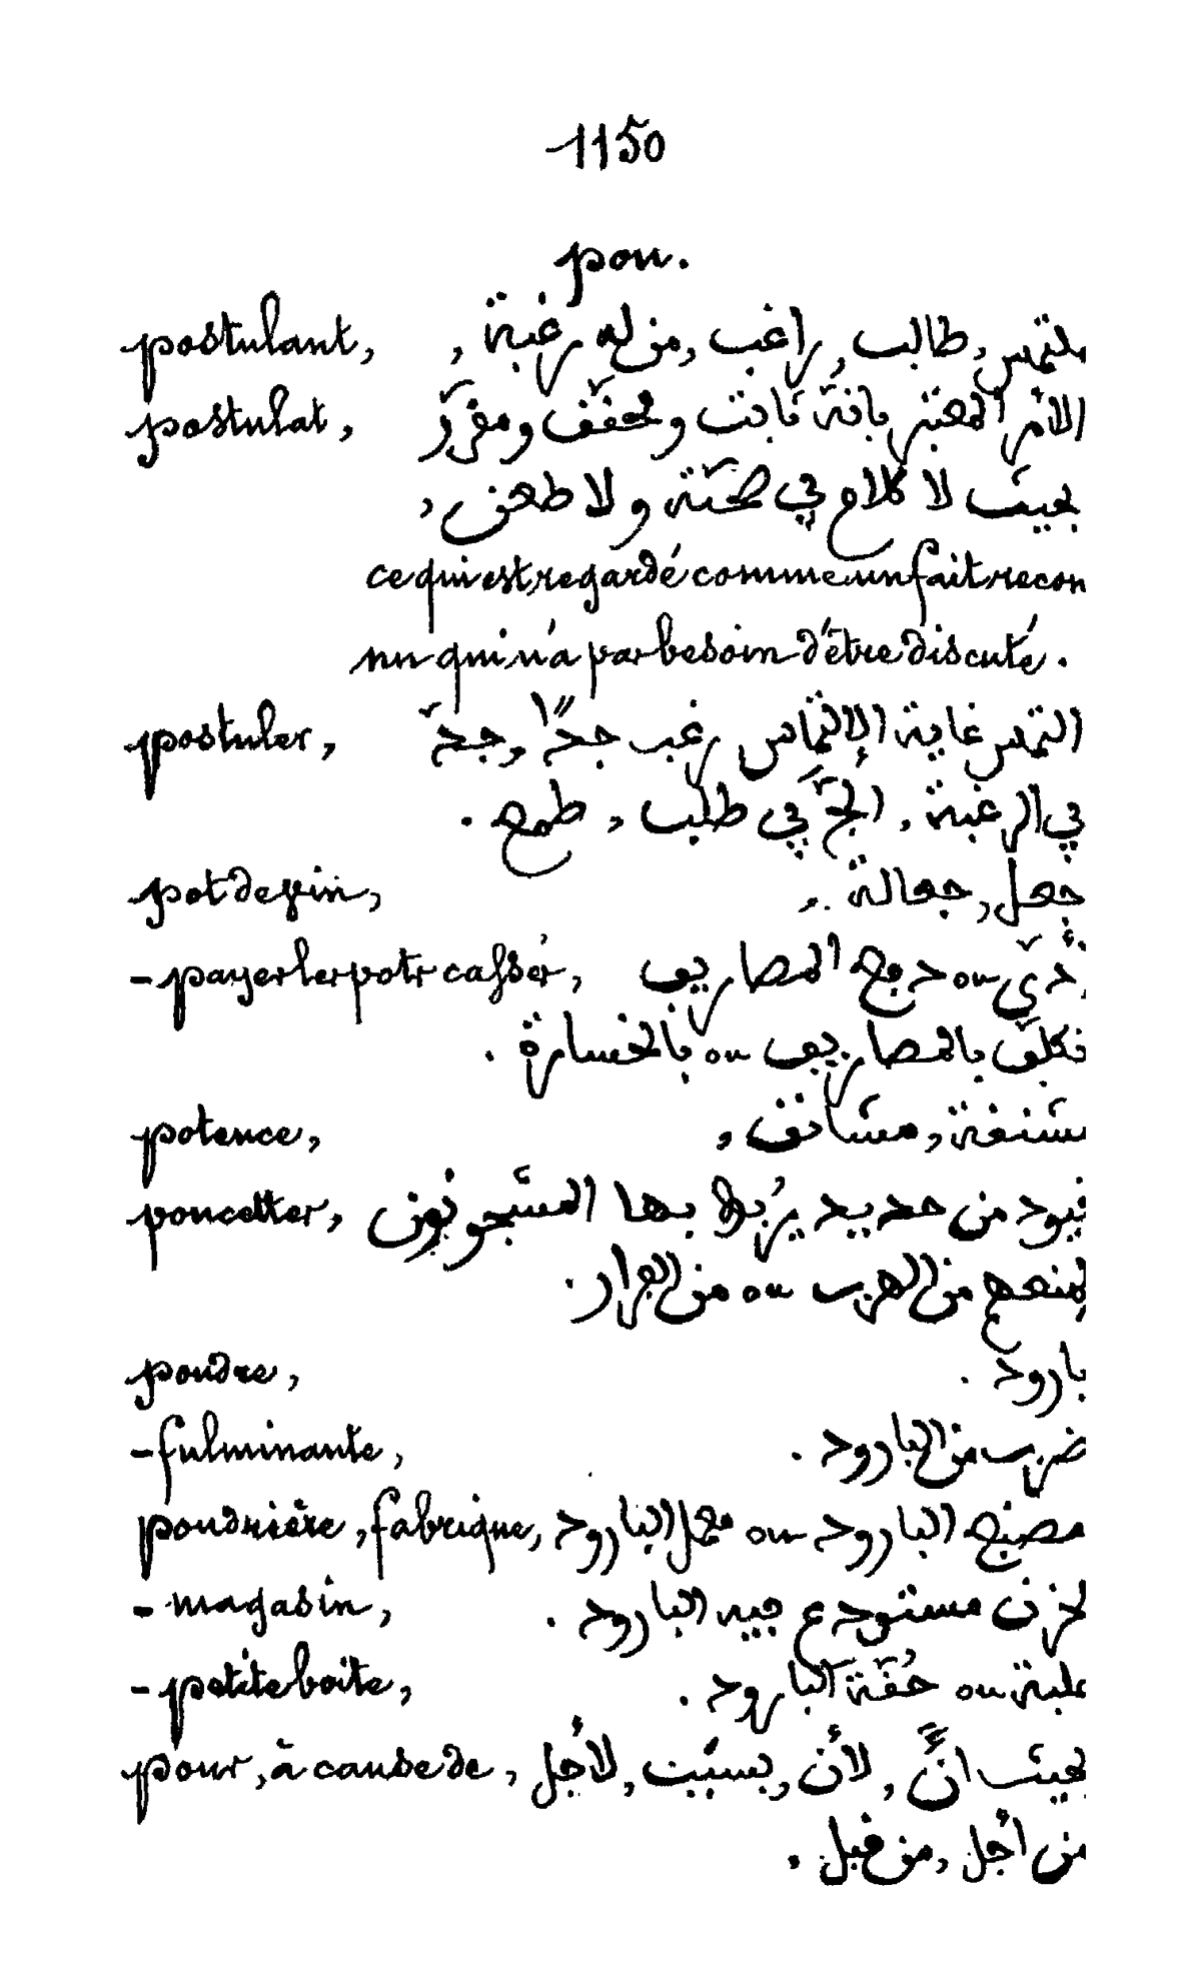 1150
pou.
postulant, ملتمس, طالب, راغب, من له رغبة,
postulat, الأمر المعتبر بانه ثابت ومحقق ومقرر
بحيث لا كلام في صحته ولا طعن,
ce qui est regardé comme un fait recon
nu qui n'a pas besoin d'être discuté.
postuler, التمس غاية الإلتماس رغب جدًّا, جدّ
في الرغبة, ألحّ في طلب, طمع.
pot de vin, جعل, جعالة.
- payer les pots cassés, أدّى ou دفع المصاريف
تكلّف بالمصاريف ou بالخسارة.
potence, مشنقة, مشانق,
poucettes, قيود من حديد يُربط بها المسجونون
لمنعهم من الهرب ou من الفرار.
poudre, بارود.
- fulminante, ضرب من البارود.
poudrière, fabrique, مصنع البارود ou محل البارود
- magasin, مخزن مستودع فيه البارود.
- petite boîte, علبة ou حُقّة البارود.
pour, à cause de, بحيث انّ, لأن, بسبب, لأجل
من أجل, من قبل,